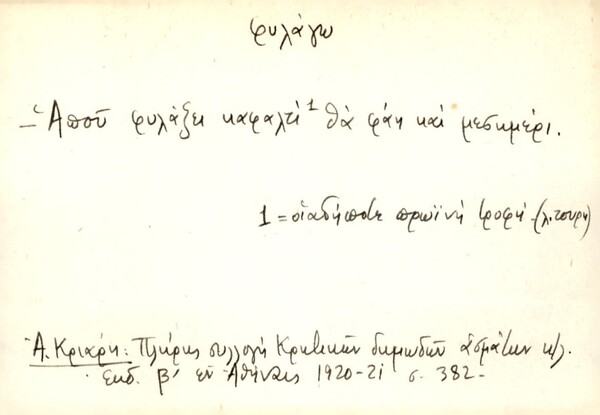 φυλάγω
– Ἀποῦ φυλάξει καφαλτί¹ θὰ φάη καὶ μεσημέρι.
1 = οἱαδήποτε πρωϊνή τροφή - (λ. τουρκ)
Ἀ. Κριάρη: Πλήρης συλλογή Κρητικῶν δημωδῶν ἀσμάτων κ.λ.
Ἐκδ. β' ἐν Ἀθήναις 1920-21 σ. 382 -